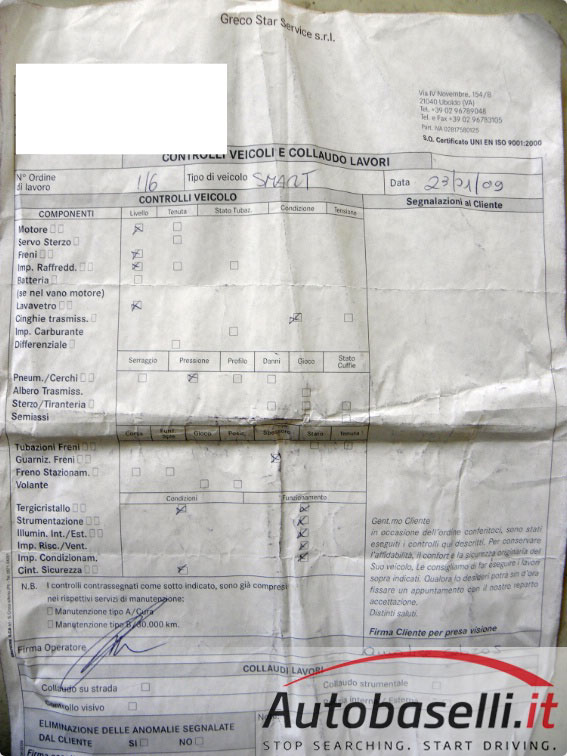 Greco Star Service s.r.l.
Via IV Novembre, 154/B
21040 Uboldo (VA)
Tel. +39 02 96789048
Tel. e Fax +39 02 96783105
Part. IVA 02817580125
S.Q. Certificato UNI EN ISO 9001:2000
CONTROLLI VEICOLI E COLLAUDO LAVORI
N° Ordine di lavoro 116 Tipo di veicolo SMART Data 23/01/09
CONTROLLI VEICOLO Segnalazioni al Cliente
COMPONENTI Livello Tenuta Stato Tubaz. Condizione Tensione
Motore
Servo Sterzo
Freni
Imp. Raffredd.
Batteria
(se nel vano motore)
Lavavetro
Cinghie trasmiss.
Imp. Carburante
Differenziale
Serraggio Pressione Profilo Danni Gioco Stato Cuffie
Pneum./Cerchi
Albero Trasmiss.
Sterzo/Tiranteria
Semiassi
Corsa Gioco Stato Tenuta
Tubazioni Freni
Guarniz. Freni
Freno Stazionam.
Volante
Condizioni Funzionamento
Tergicristallo
Strumentazione
Illumin. Int./Est.
Imp. Risc./Vent.
Imp. Condizionam.
Cint. Sicurezza
Gent.mo Cliente
in occasione dell'ordine conferitoci, sono stati
eseguiti i controlli qui descritti. Per conservare
l'affidabilità, il confort e la sicurezza originaria del
Suo veicolo, Le consigliamo di far eseguire i lavori
sopra indicati. Qualora lo desideri potrà sin d'ora
fissare un appuntamento con il nostro reparto
accettazione.
Distinti saluti.
Firma Cliente per presa visione
N.B. I controlli contrassegnati come sotto indicato, sono già compresi
nei rispettivi servizi di manutenzione:
Manutenzione tipo A/Cura
Manutenzione tipo B/30.000 km.
Firma Operatore
COLLAUDI LAVORI
Collaudo su strada Collaudo strumentale
Controllo visivo
ELIMINAZIONE DELLE ANOMALIE SEGNALATE
DAL CLIENTE SI NO
Autobaselli.it
STOP SEARCHING. START DRIVING.